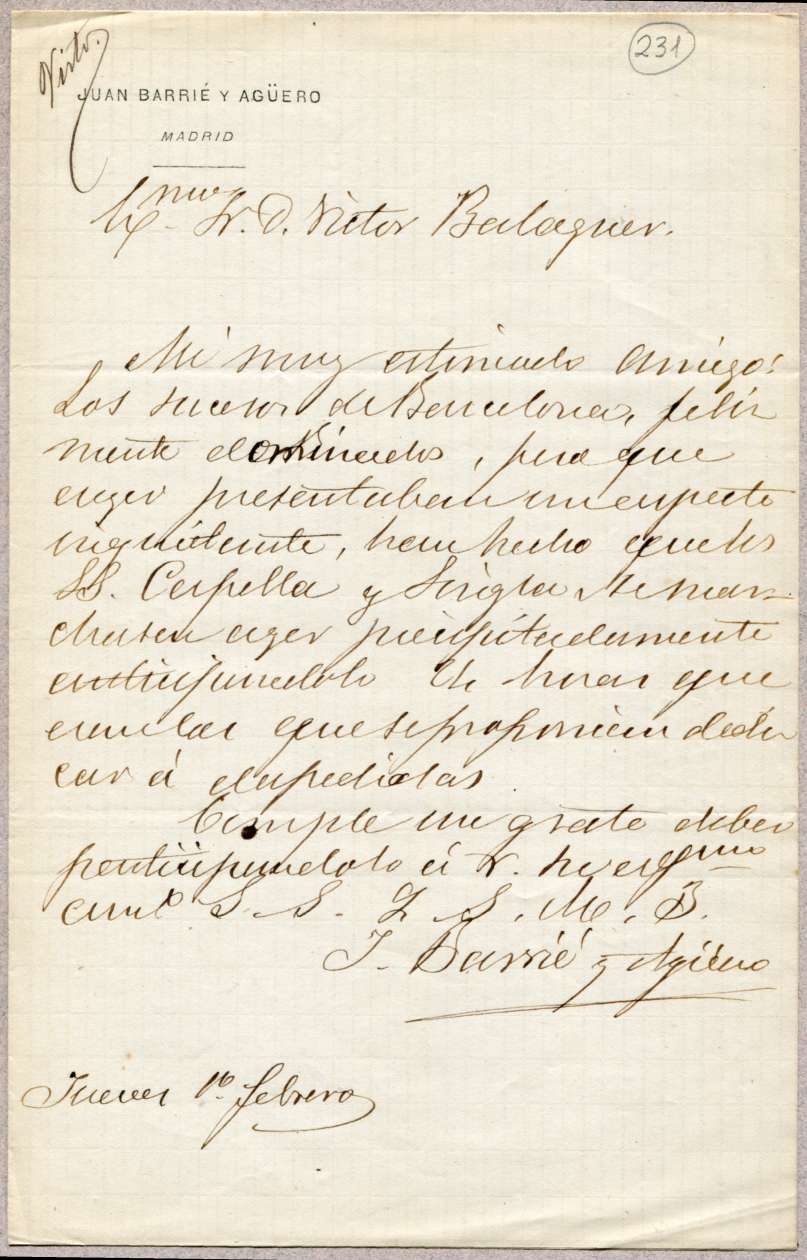 Visto.
231
JUAN BARRIÉ Y AGÜERO
MADRID
Exmo Sr. D. Victor Balaguer.
Mi muy estimado amigo:
Los sucesos de Barcelona, feliz
mente dominados, pero que
ayer presentaban un aspecto
inquietante, han hecho que los
SS. Carpella y Singla se mar-
chasen ayer precipitadamente
anticipandolo 24 horas que
eran las que se proponian dedi
car á despedidas
Cumple un grato deber
participandolo á V. su affmo
am.o S. S. Q. S. M. B.
J. Barrié y Agüero
Jueves 1o. febrero